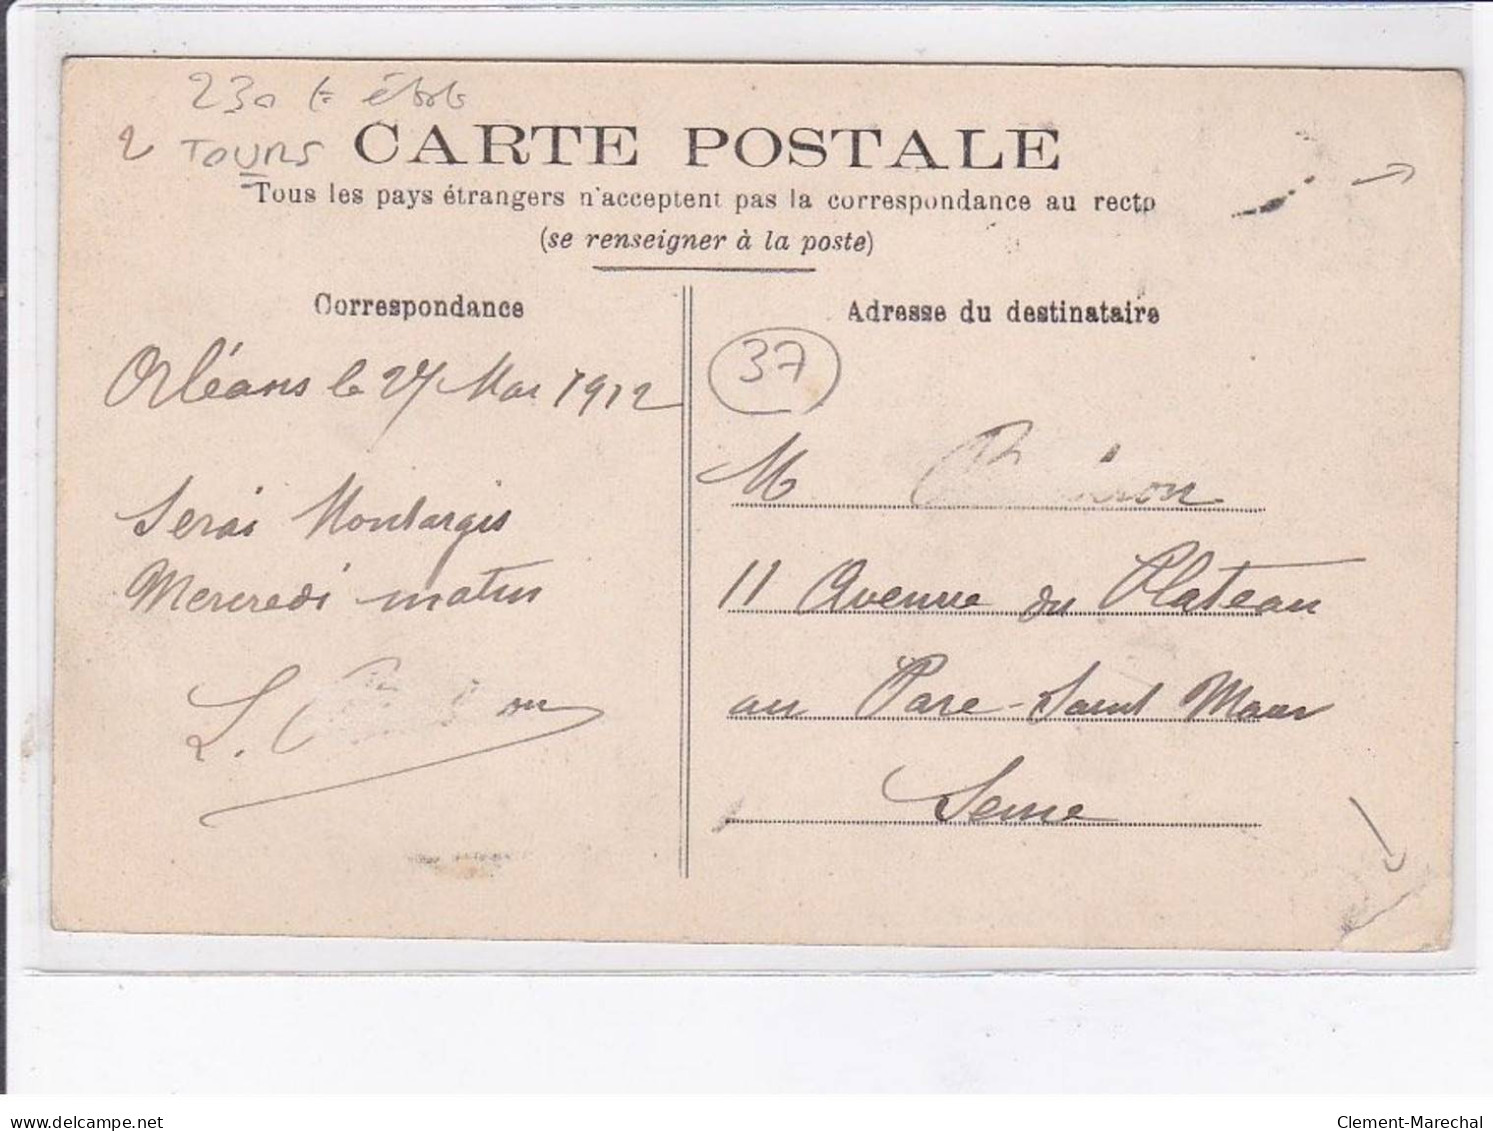 230 €
2 TOURS
CARTE POSTALE
Tous les pays étrangers n'acceptent pas la correspondance au recto
(se renseigner à la poste)
Correspondance
Orléans le 27 Mai 1912
Serai Montargis
Mercredi matin
L.
Adresse du destinataire
37
M
11 Avenue du Plateau
au Parc-Saint Maur
Seine
delcampe.net
Clement-Marechal